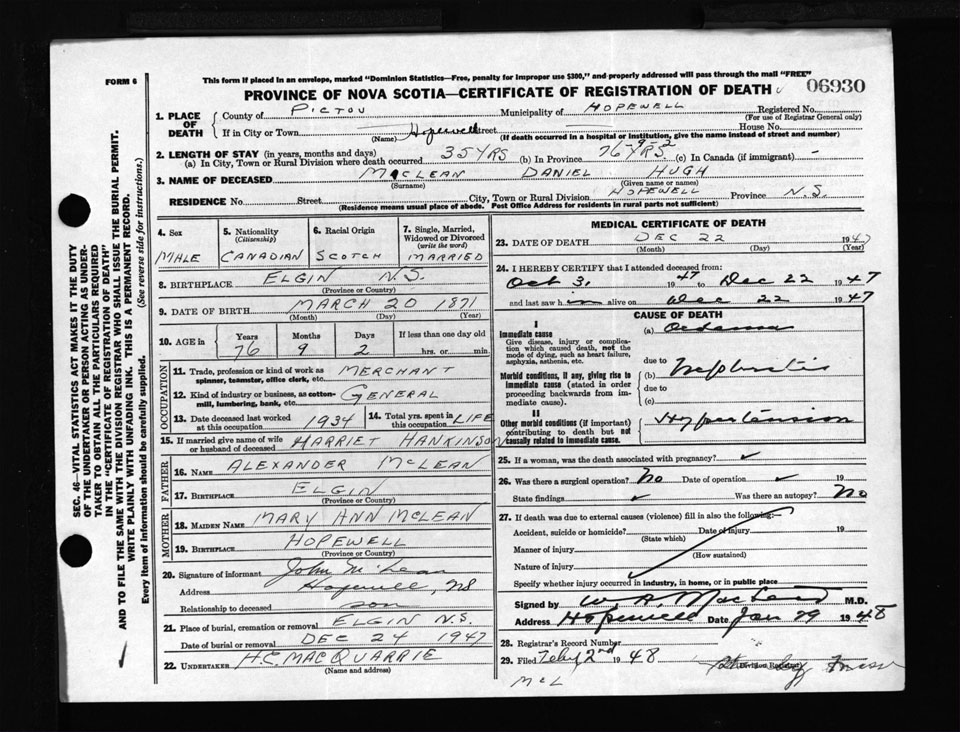 FORM 6
This form if placed in an envelope, marked "Dominion Statistics—Free, penalty for improper use $300," and properly addressed will pass through the mail "FREE"
PROVINCE OF NOVA SCOTIA—CERTIFICATE OF REGISTRATION OF DEATH
06930
1. PLACE OF DEATH
County of PICTOU Municipality of HOPEWELL Registered No.
(For use of Registrar General only)
If in City or Town Hopewell street House No.
(Name) (If death occurred in a hospital or institution, give the name instead of street and number)
2. LENGTH OF STAY (in years, months and days)
(a) In City, Town or Rural Division where death occurred 35 YRS (b) In Province 76 YRS 9 2 (c) In Canada (if immigrant) -
3. NAME OF DECEASED McLEAN DANIEL HUGH
(Surname) (Given name or names)
RESIDENCE No. Street City, Town or Rural Division HOPEWELL Province N.S.
(Residence means usual place of abode. Post Office Address for residents in rural parts not sufficient)
4. Sex MALE
5. Nationality (Citizenship) CANADIAN
6. Racial Origin SCOTCH
7. Single, Married, Widowed or Divorced (write the word) MARRIED
8. BIRTHPLACE ELGIN N.S.
(Province or Country)
9. DATE OF BIRTH MARCH 20 1871
(Month) (Day) (Year)
10. AGE in Years Months Days If less than one day old
76 9 2 hrs. or min.
OCCUPATION
11. Trade, profession or kind of work as spinner, teamster, office clerk, etc. MERCHANT
12. Kind of industry or business, as cotton-mill, lumbering, bank, etc. GENERAL
13. Date deceased last worked at this occupation 1934
14. Total yrs. spent in this occupation LIFE
15. If married give name of wife or husband of deceased HARRIET HANKINSON
FATHER
16. NAME ALEXANDER McLEAN
17. BIRTHPLACE ELGIN
(Province or Country)
MOTHER
18. MAIDEN NAME MARY ANN McLEAN
19. BIRTHPLACE HOPEWELL
(Province or Country)
20. Signature of informant John McLean
Address Hopewell, NS
Relationship to deceased son
21. Place of burial, cremation or removal ELGIN N.S.
Date of burial or removal DEC 24 1947
22. UNDERTAKER H.C. MACQUARRIE
(Name and address)
MEDICAL CERTIFICATE OF DEATH
23. DATE OF DEATH DEC 22 1947
(Month) (Day) (Year)
24. I HEREBY CERTIFY that I attended deceased from:
Oct 31 1947 to Dec 22 1947
and last saw him alive on Dec 22 1947
CAUSE OF DEATH
I
Immediate cause
Give disease, injury or complication which caused death, not the mode of dying, such as heart failure, asphyxia, asthenia, etc.
(a) Oedema
due to
Morbid conditions, if any, giving rise to immediate cause (stated in order proceeding backwards from immediate cause).
(b) Nephritis
due to
(c)
II
Other morbid conditions (if important) contributing to death but not causally related to immediate cause.
Hypertension
25. If a woman, was the death associated with pregnancy?
26. Was there a surgical operation? No Date of operation 19
State findings Was there an autopsy? No
27. If death was due to external causes (violence) fill in also the following:—
Accident, suicide or homicide? Date of injury 19
(State which)
Manner of injury
(How sustained)
Nature of injury
Specify whether injury occurred in industry, in home, or in public place
Signed by W A MacLeod M.D.
Address Hopewell Date Jan 29 1948
28. Registrar's Record Number
29. Filed Feby 2nd 1948
Division Registrar
McL
SEC. 46—VITAL STATISTICS ACT MAKES IT THE DUTY
OF THE UNDERTAKER OR PERSON ACTING AS UNDER-
TAKER TO OBTAIN ALL THE PARTICULARS REQUIRED
IN THE "CERTIFICATE OF REGISTRATION OF DEATH"
AND TO FILE THE SAME WITH THE DIVISION REGISTRAR WHO SHALL ISSUE THE BURIAL PERMIT.
WRITE PLAINLY WITH UNFADING INK. THIS IS A PERMANENT RECORD.
Every item of information should be carefully supplied. (See reverse side for instructions.)